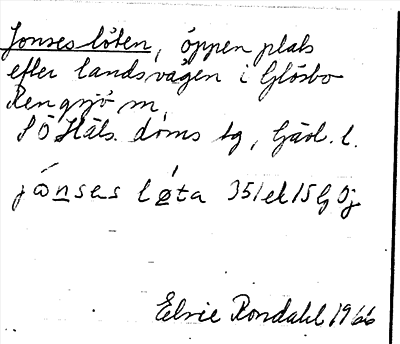 Jonseslöten, öppen plats
efter landsvägen i Glösbo
Rengsjö m,
SÖ Häls. doms tg, Gävl. l.
jónses løta 351 ek 15 G Öj
Elvie Rondahl 1966